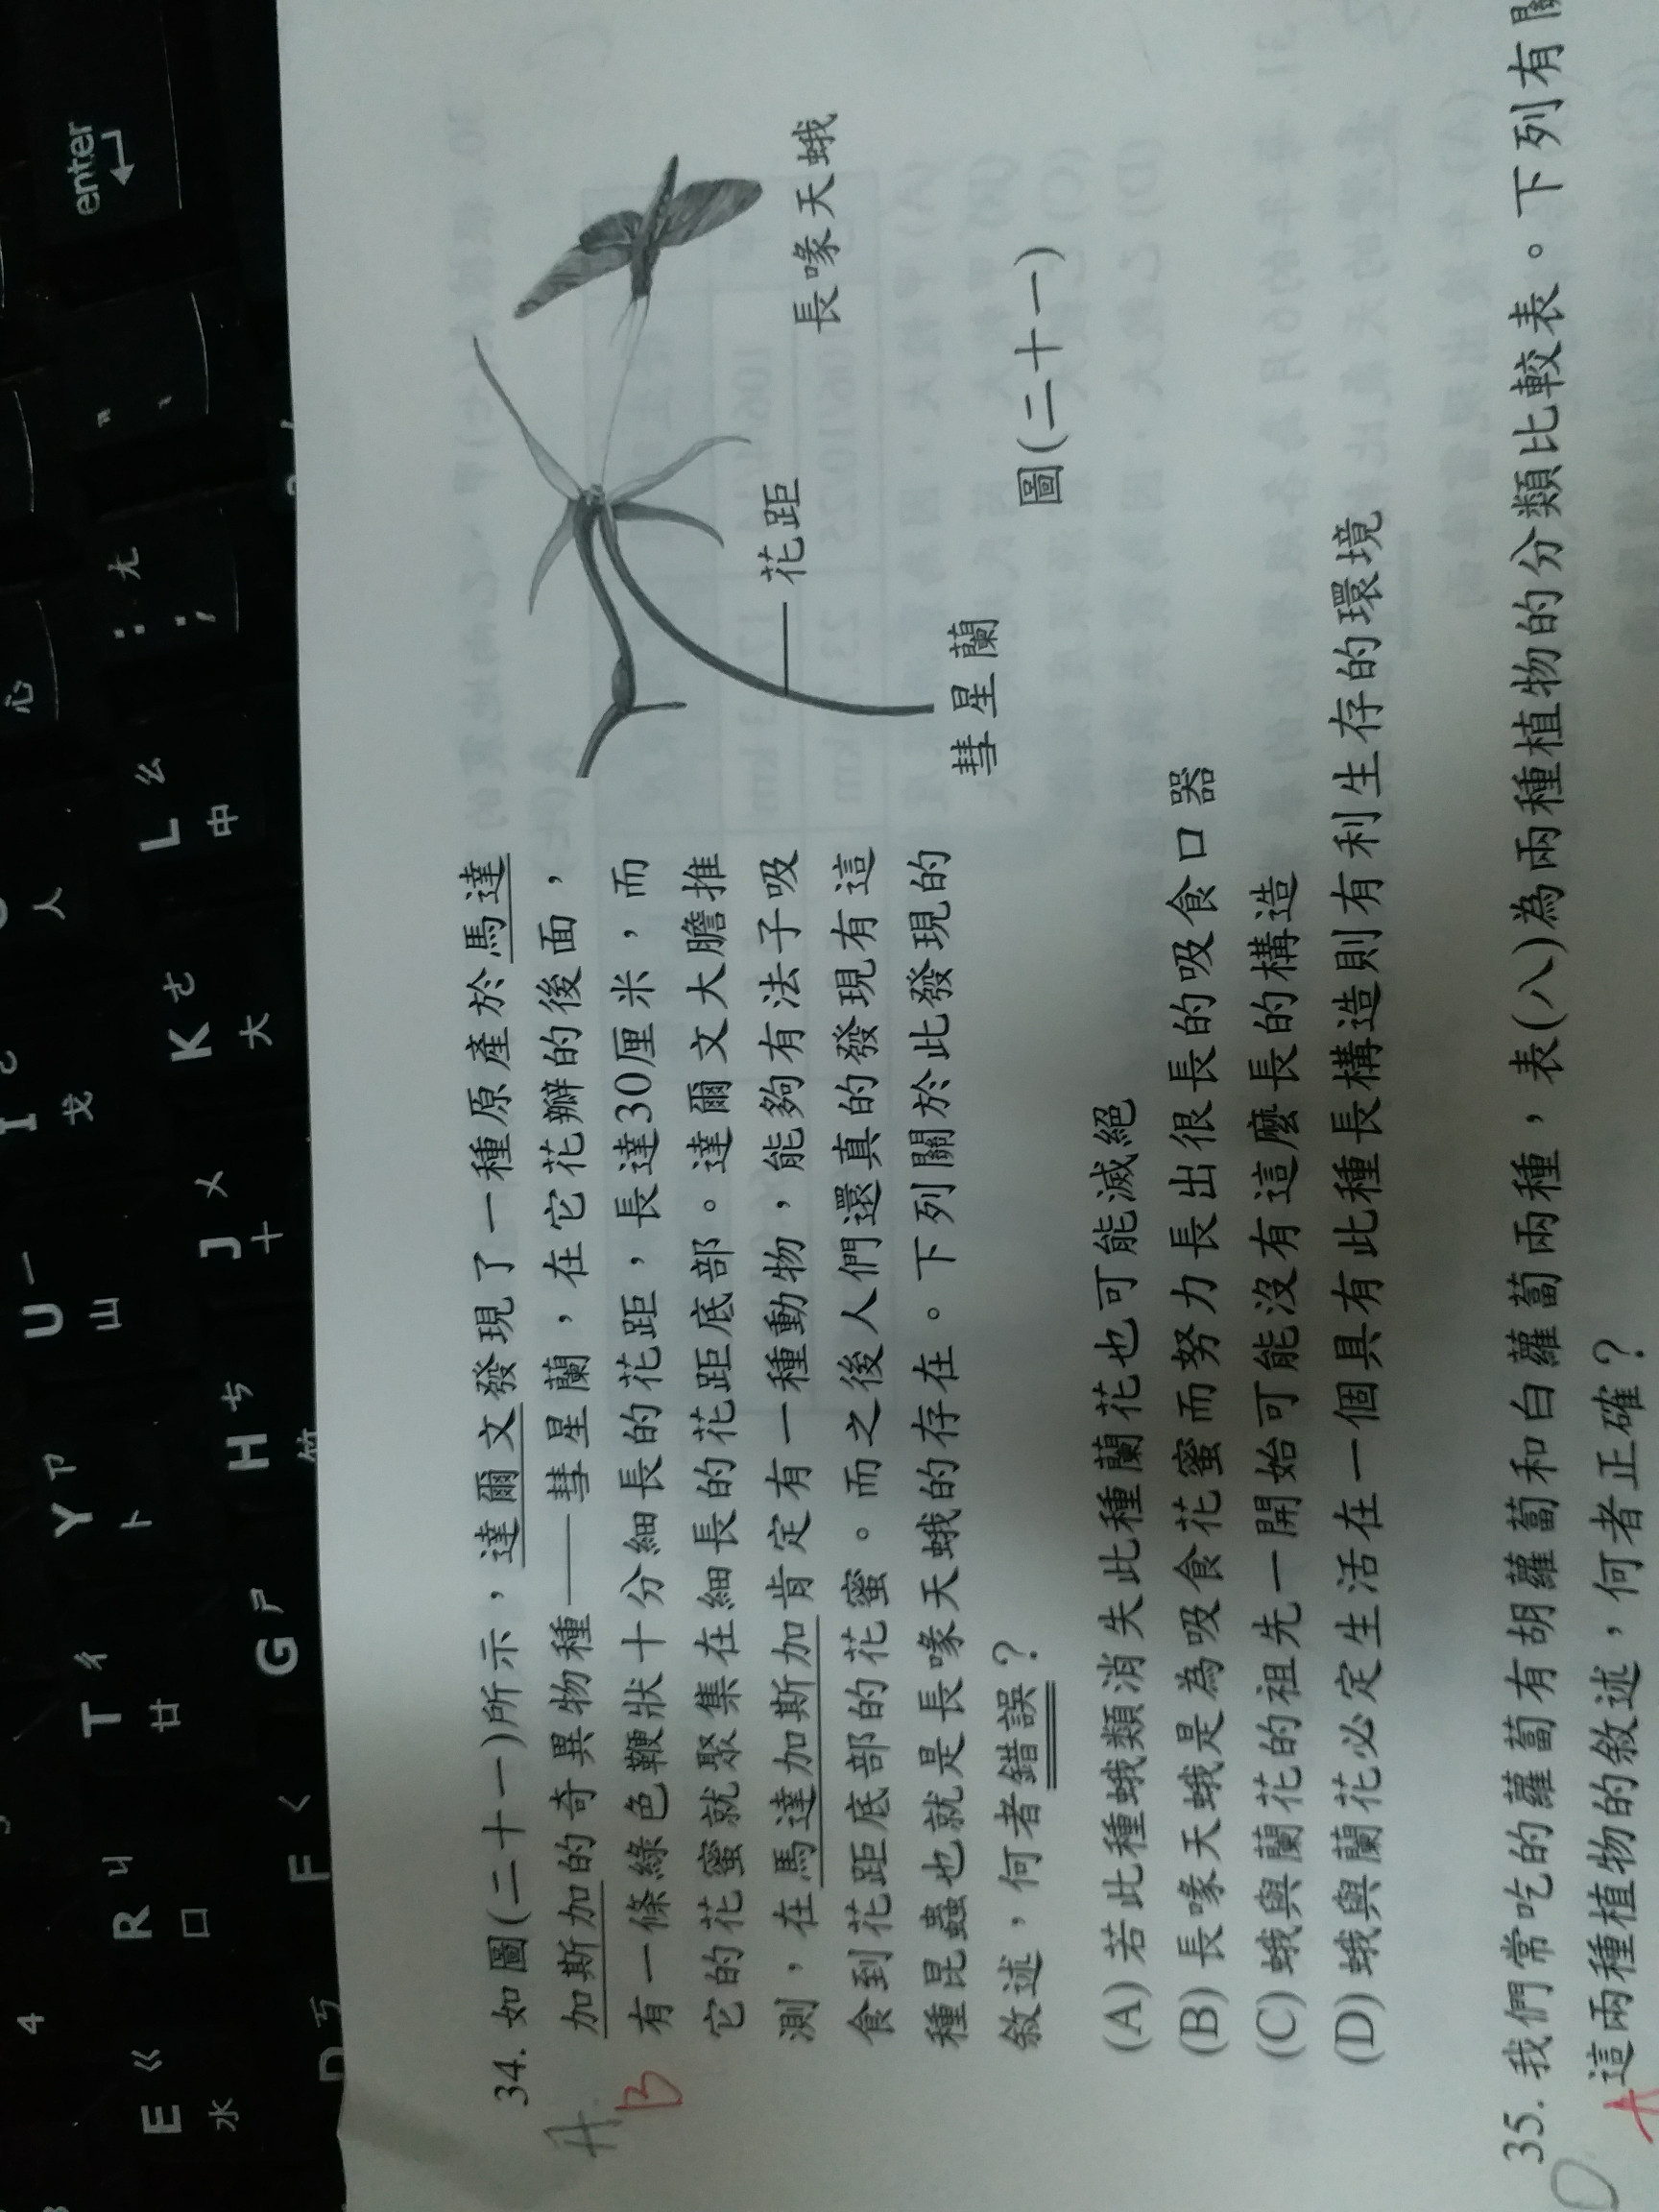 enter
" 、
: ; ㄤ
心
L ㄠ 中
人
K ㄜ 大
I ㄛ 戈
J ㄨ 十
U ㄧ 山
H ㄘ 竹
Y ㄗ 卜
G ㄕ
T ㄔ 廿
F ㄑ
R ㄐ 口
4
D ㄎ
E ㄍ 水
34. 如圖(二十一)所示，達爾文發現了一種原產於馬達
加斯加的奇異物種——彗星蘭，在它花瓣的後面，
有一條綠色鞭狀十分細長的花距，長達30厘米，而
它的花蜜就聚集在細長的花距底部。達爾文大膽推
測，在馬達加斯加肯定有一種動物，能夠有法子吸
食到花距底部的花蜜。而之後人們還真的發現有這
種昆蟲也就是長喙天蛾的存在。下列關於此發現的
敘述，何者錯誤？
A
B
長喙天蛾
花距
彗星蘭
圖(二十一)
(A) 若此種蛾類消失此種蘭花也可能滅絕
(B) 長喙天蛾是為吸食花蜜而努力長出很長的吸食口器
(C) 蛾與蘭花的祖先一開始可能沒有這麼長的構造
(D) 蛾與蘭花必定生活在一個具有此種長構造則有利生存的環境
35. 我們常吃的蘿蔔有胡蘿蔔和白蘿蔔兩種，表(八)為兩種植物的分類比較表。下列有關
這兩種植物的敘述，何者正確？
D
A